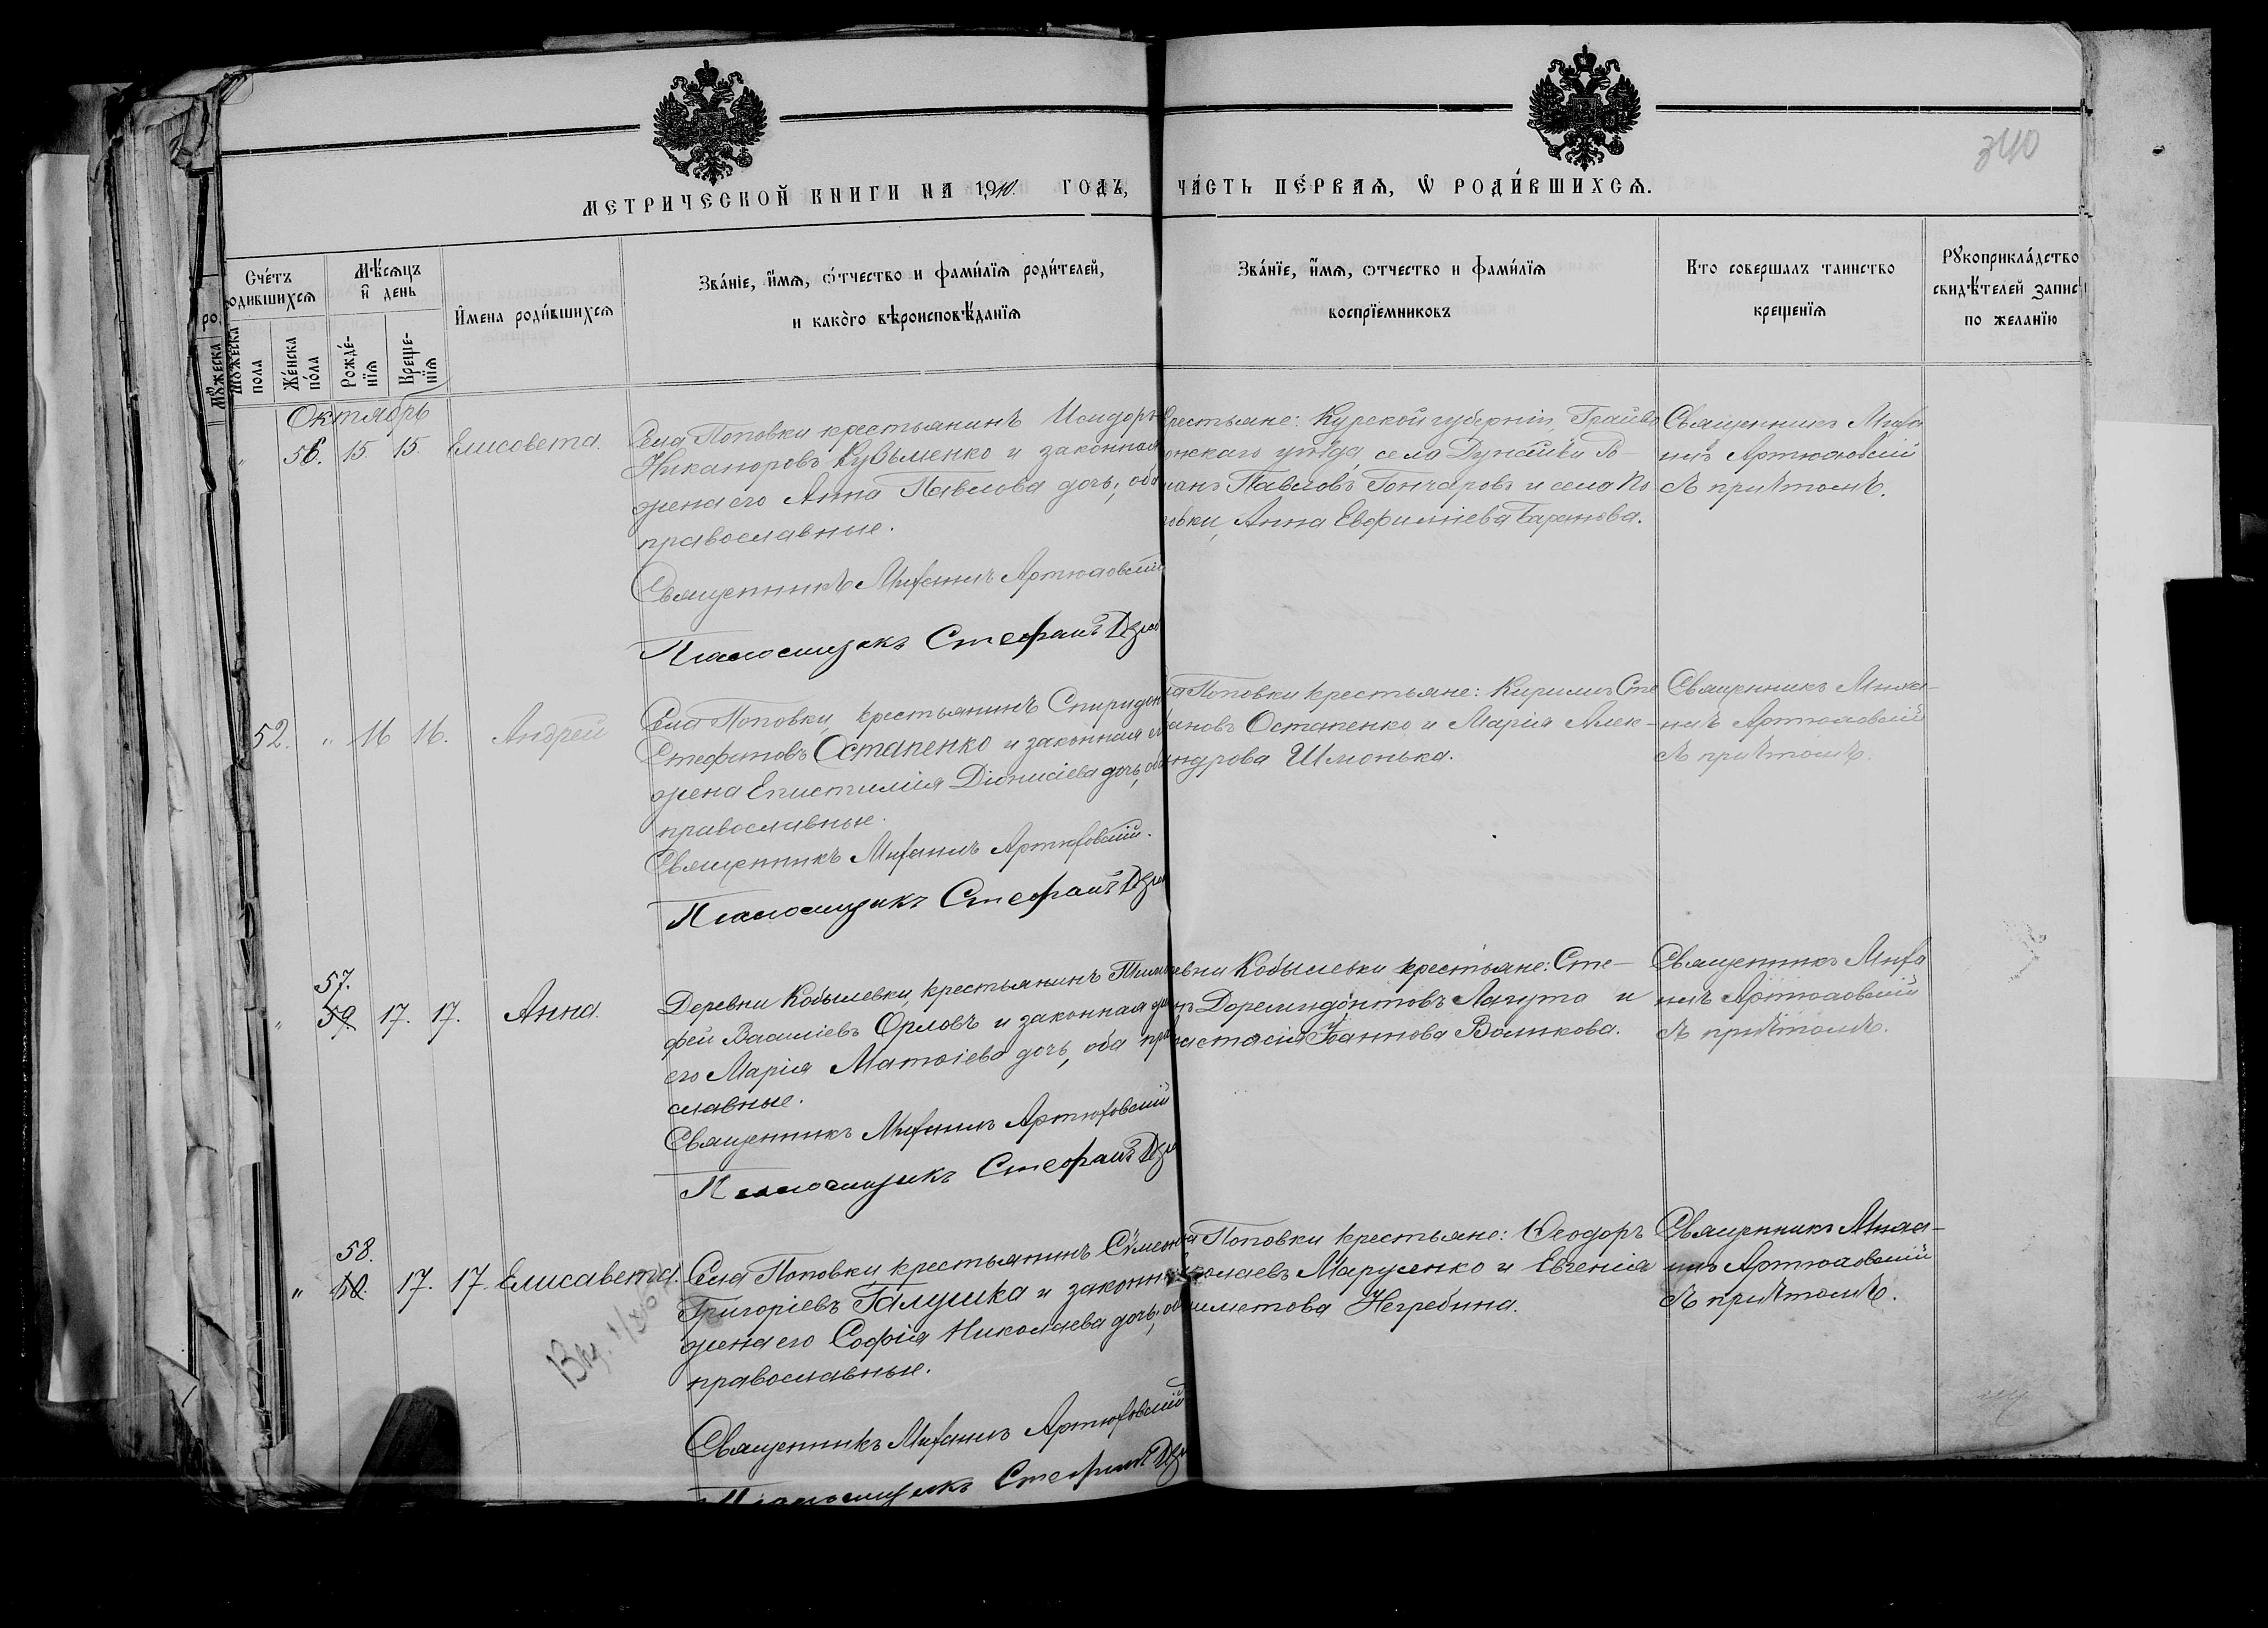 340
МЕТРИЧЕСКОЙ КНИГИ НА 1910. ГОДЪ, ЧА́СТЬ ПЕ́РВАѦ, Ѡ҆ РОДИ́ВШИХСѦ.
Сче́тъ родившихсѧ
Мѣ́сѧцъ и҆ день
И҆мена роди́вшихсѧ
Зва́ніе, и҆́мѧ, ѻ҆́тчество и фами́лїѧ роди́телей,
и како́го вѣроисповѣ́данїѧ
Зва́нїе, и҆́мѧ, ѻтчество и фами́лїѧ
воспрїе́мниковъ
Кто совершалъ таинство
крещенїѧ
Рꙋкоприкла́дство
свидѣ́телей запис
по желанїю
Мꙋжеска пола
Же́нска по́ла
Рожде́нїѧ
Креще́нїѧ
Октябрь
„ 56. 15. 15. Елисовета.
Села Поповки крестьянинъ Исидоръ
Никаноровъ Кузьменко и законная
жена его Анна Павлова дочь, оба
православные.
Священникъ Михаилъ Артюховскій
Псаломщикъ Стефанъ
Крестьяне: Курской губерніи, Грайво
онскаго уѣзда села Дунайки
манъ Павловъ Гончаровъ и села По
повки, Анна Евфиміева Баранова.
Священникъ Миха
илъ Артюховскій
съ причтомъ.
52. „ 16 16. Андрей
Села Поповки, крестьянинъ Спиридонъ
Стефановъ Остапенко и законная
жена Епистимія Діонисіева дочь, оба
православные.
Священникъ Михаилъ Артюховскій.
Псаломщикъ Стефанъ
Поповки крестьяне: Кирилъ Сте
ановъ Остапенко и Марія Алек-
андрова Шмонька.
Священникъ Миха-
илъ Артюховскій
съ причтомъ.
57.
„ 59 17. 17. Анна.
Деревни Кобылевки, крестьянинъ Тимо
фей Василіевъ Орловъ и законная
его Марія Матѳіева дочь, оба пра
славные.
Священникъ Михаилъ Артюховскій
Псаломщикъ Стефанъ
евни Кобылевки крестьяне: Сте-
Доремидонтовъ Лагута и
настасія Іоаннова Волкова.
Священникъ Миха
илъ Артюховскій
съ причтомъ.
58.
„ 17. 17. Елисавета.
Села Поповки крестьянинъ Сѵмеонъ
Григоріевъ Галушка и законн
жена его Софія Николаева дочь, оба
православные.
Священникъ Михаилъ Артюховскій
Псаломщикъ Стефанъ
Поповки крестьяне: Ѳеодоръ
колаевъ Марусенко и Евгенія
Негребина.
Священникъ Миха-
илъ Артюховскій
съ причтомъ.